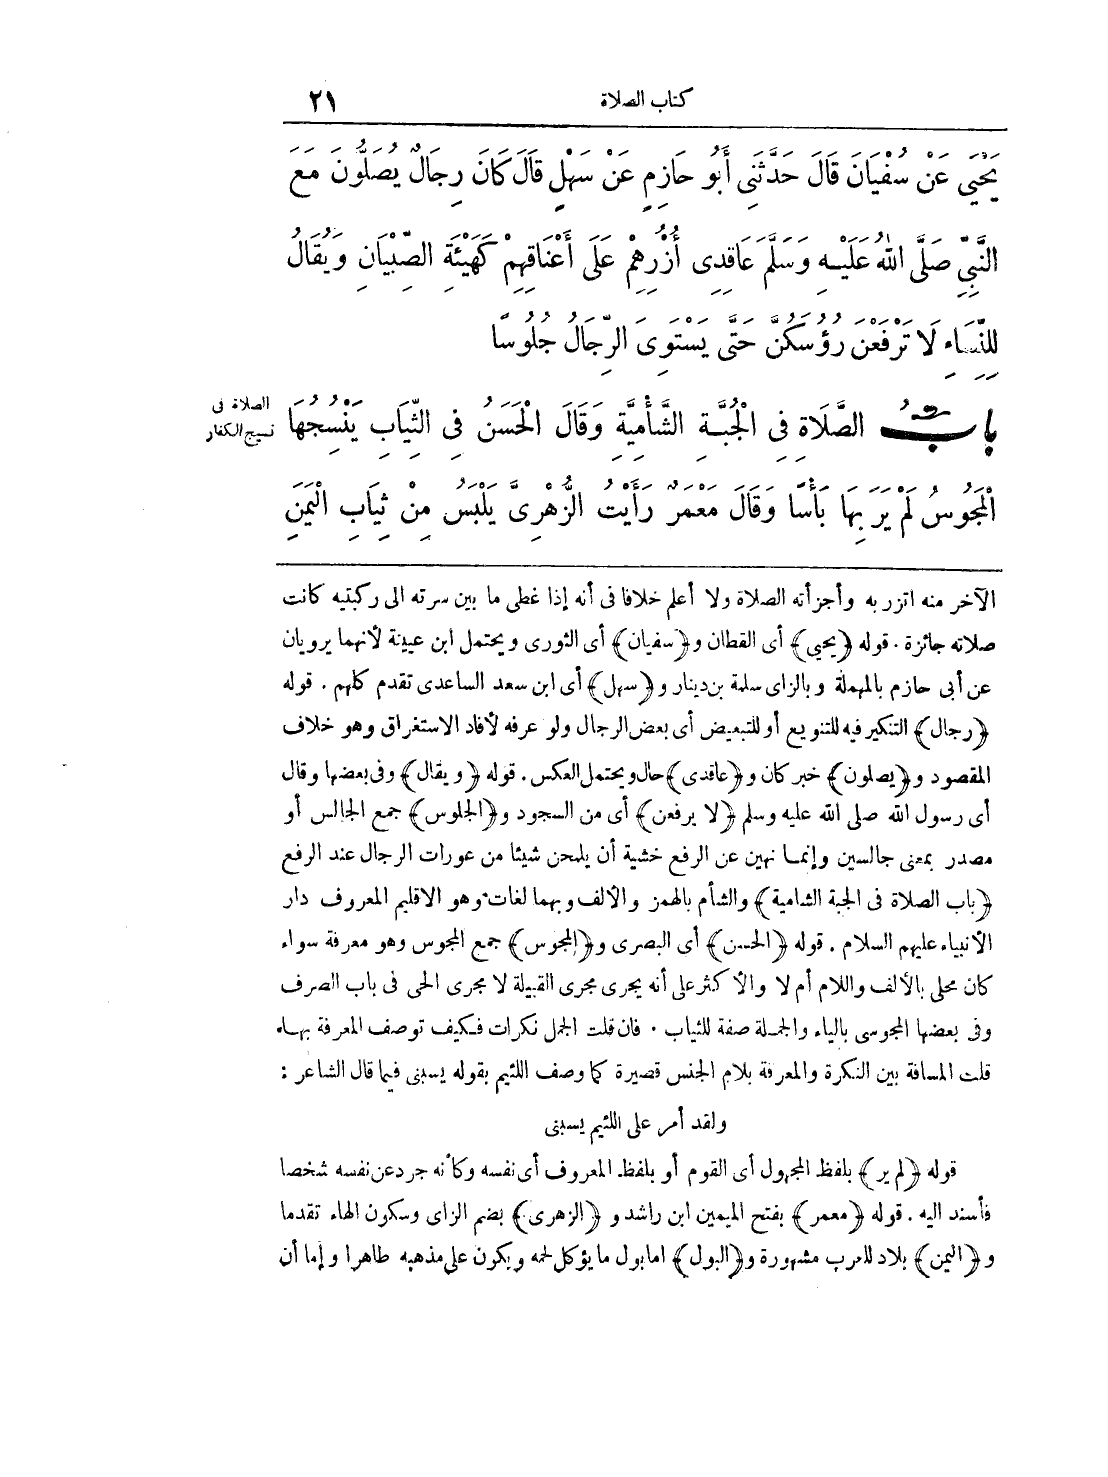 كتاب الصلاة ٢١
يَحْيَى عَنْ سُفْيَانَ قَالَ حَدَّثَنِى أَبُو حَازِمٍ عَنْ سَهْلٍ قَالَ كَانَ رِجَالٌ يُصَلُّونَ مَعَ
النَّبِىِّ صَلَّى اللهُ عَلَيْهِ وَسَلَّمَ عَاقِدِى أُزْرِهِمْ عَلَى أَعْنَاقِهِمْ كَهَيْئَةِ الصِّبْيَانِ وَيُقَالُ
لِلنِّسَاءِ لَا تَرْفَعْنَ رُؤُسَكُنَّ حَتَّى يَسْتَوِىَ الرِّجَالُ جُلُوسًا
بَابُ الصَّلَاةِ فِى الْجُبَّةِ الشَّأْمِيَّةِ وَقَالَ الْحَسَنُ فِى الثِّيَابِ يَنْسُجُهَا
الصلاة فى
نسيج الكفار
الْمَجُوسُ لَمْ يَرَ بِهَا بَأْسًا وَقَالَ مَعْمَرٌ رَأَيْتُ الزُّهْرِىَّ يَلْبَسُ مِنْ ثِيَابِ الْيَمَنِ
الآخر منه اتزر به وأجزأته الصلاة ولا أعلم خلافا فى أنه إذا غطى ما بين سرته الى ركبتيه كانت
صلاته جائزة . قوله ﴿يحيى﴾ أى القطان و﴿سفيان﴾ أى الثورى ويحتمل ابن عيينة لأنهما يرويان
عن أبى حازم بالمهملة وبالزاى سلمة بن دينار و﴿سهل﴾ أى ابن سعد الساعدى تقدم كلهم . قوله
﴿رجال﴾ التنكير فيه للتنويع أو للتبعيض أى بعض الرجال ولو عرفه لأفاد الاستغراق وهو خلاف
المقصود و﴿يصلون﴾ خبر كان و﴿عاقدى﴾ حال ويحتمل العكس . قوله ﴿ويقال﴾ وفى بعضها وقال
أى رسول الله صلى الله عليه وسلم ﴿لا يرفعن﴾ أى من السجود و﴿الجلوس﴾ جمع الجالس أو
مصدر بمعنى جالسين وإنما نهين عن الرفع خشية أن يلمحن شيئا من عورات الرجال عند الرفع
﴿باب الصلاة فى الجبة الشامية﴾ والشأم بالهمز والألف وبهما لغات وهو الاقليم المعروف دار
الأنبياء عليهم السلام . قوله ﴿الحسن﴾ أى البصرى و﴿المجوس﴾ جمع المجوس وهو معرفة سواء
كان محلى بالألف واللام أم لا والأكثر على أنه يجرى مجرى القبيلة لا مجرى الحى فى باب الصرف
وفى بعضها المجوسى بالياء والجملة صفة للثياب . فان قلت الجمل نكرات فكيف توصف المعرفة بها .
قلت المسافة بين النكرة والمعرفة بلام الجنس قصيرة كما وصف اللئيم بقوله يسبنى فيما قال الشاعر :
ولقد أمر على اللئيم يسبنى
قوله ﴿لم ير﴾ بلفظ المجهول أى القوم أو بلفظ المعروف أى نفسه وكأنه جرد عن نفسه شخصا
فأسند اليه . قوله ﴿معمر﴾ بفتح الميمين ابن راشد و﴿الزهرى﴾ بضم الزاى وسكون الهاء تقدما
و﴿اليمن﴾ بلاد للعرب مشهورة و﴿البول﴾ اما بول ما يؤكل لحمه ويكون على مذهبه طاهرا وإما أن